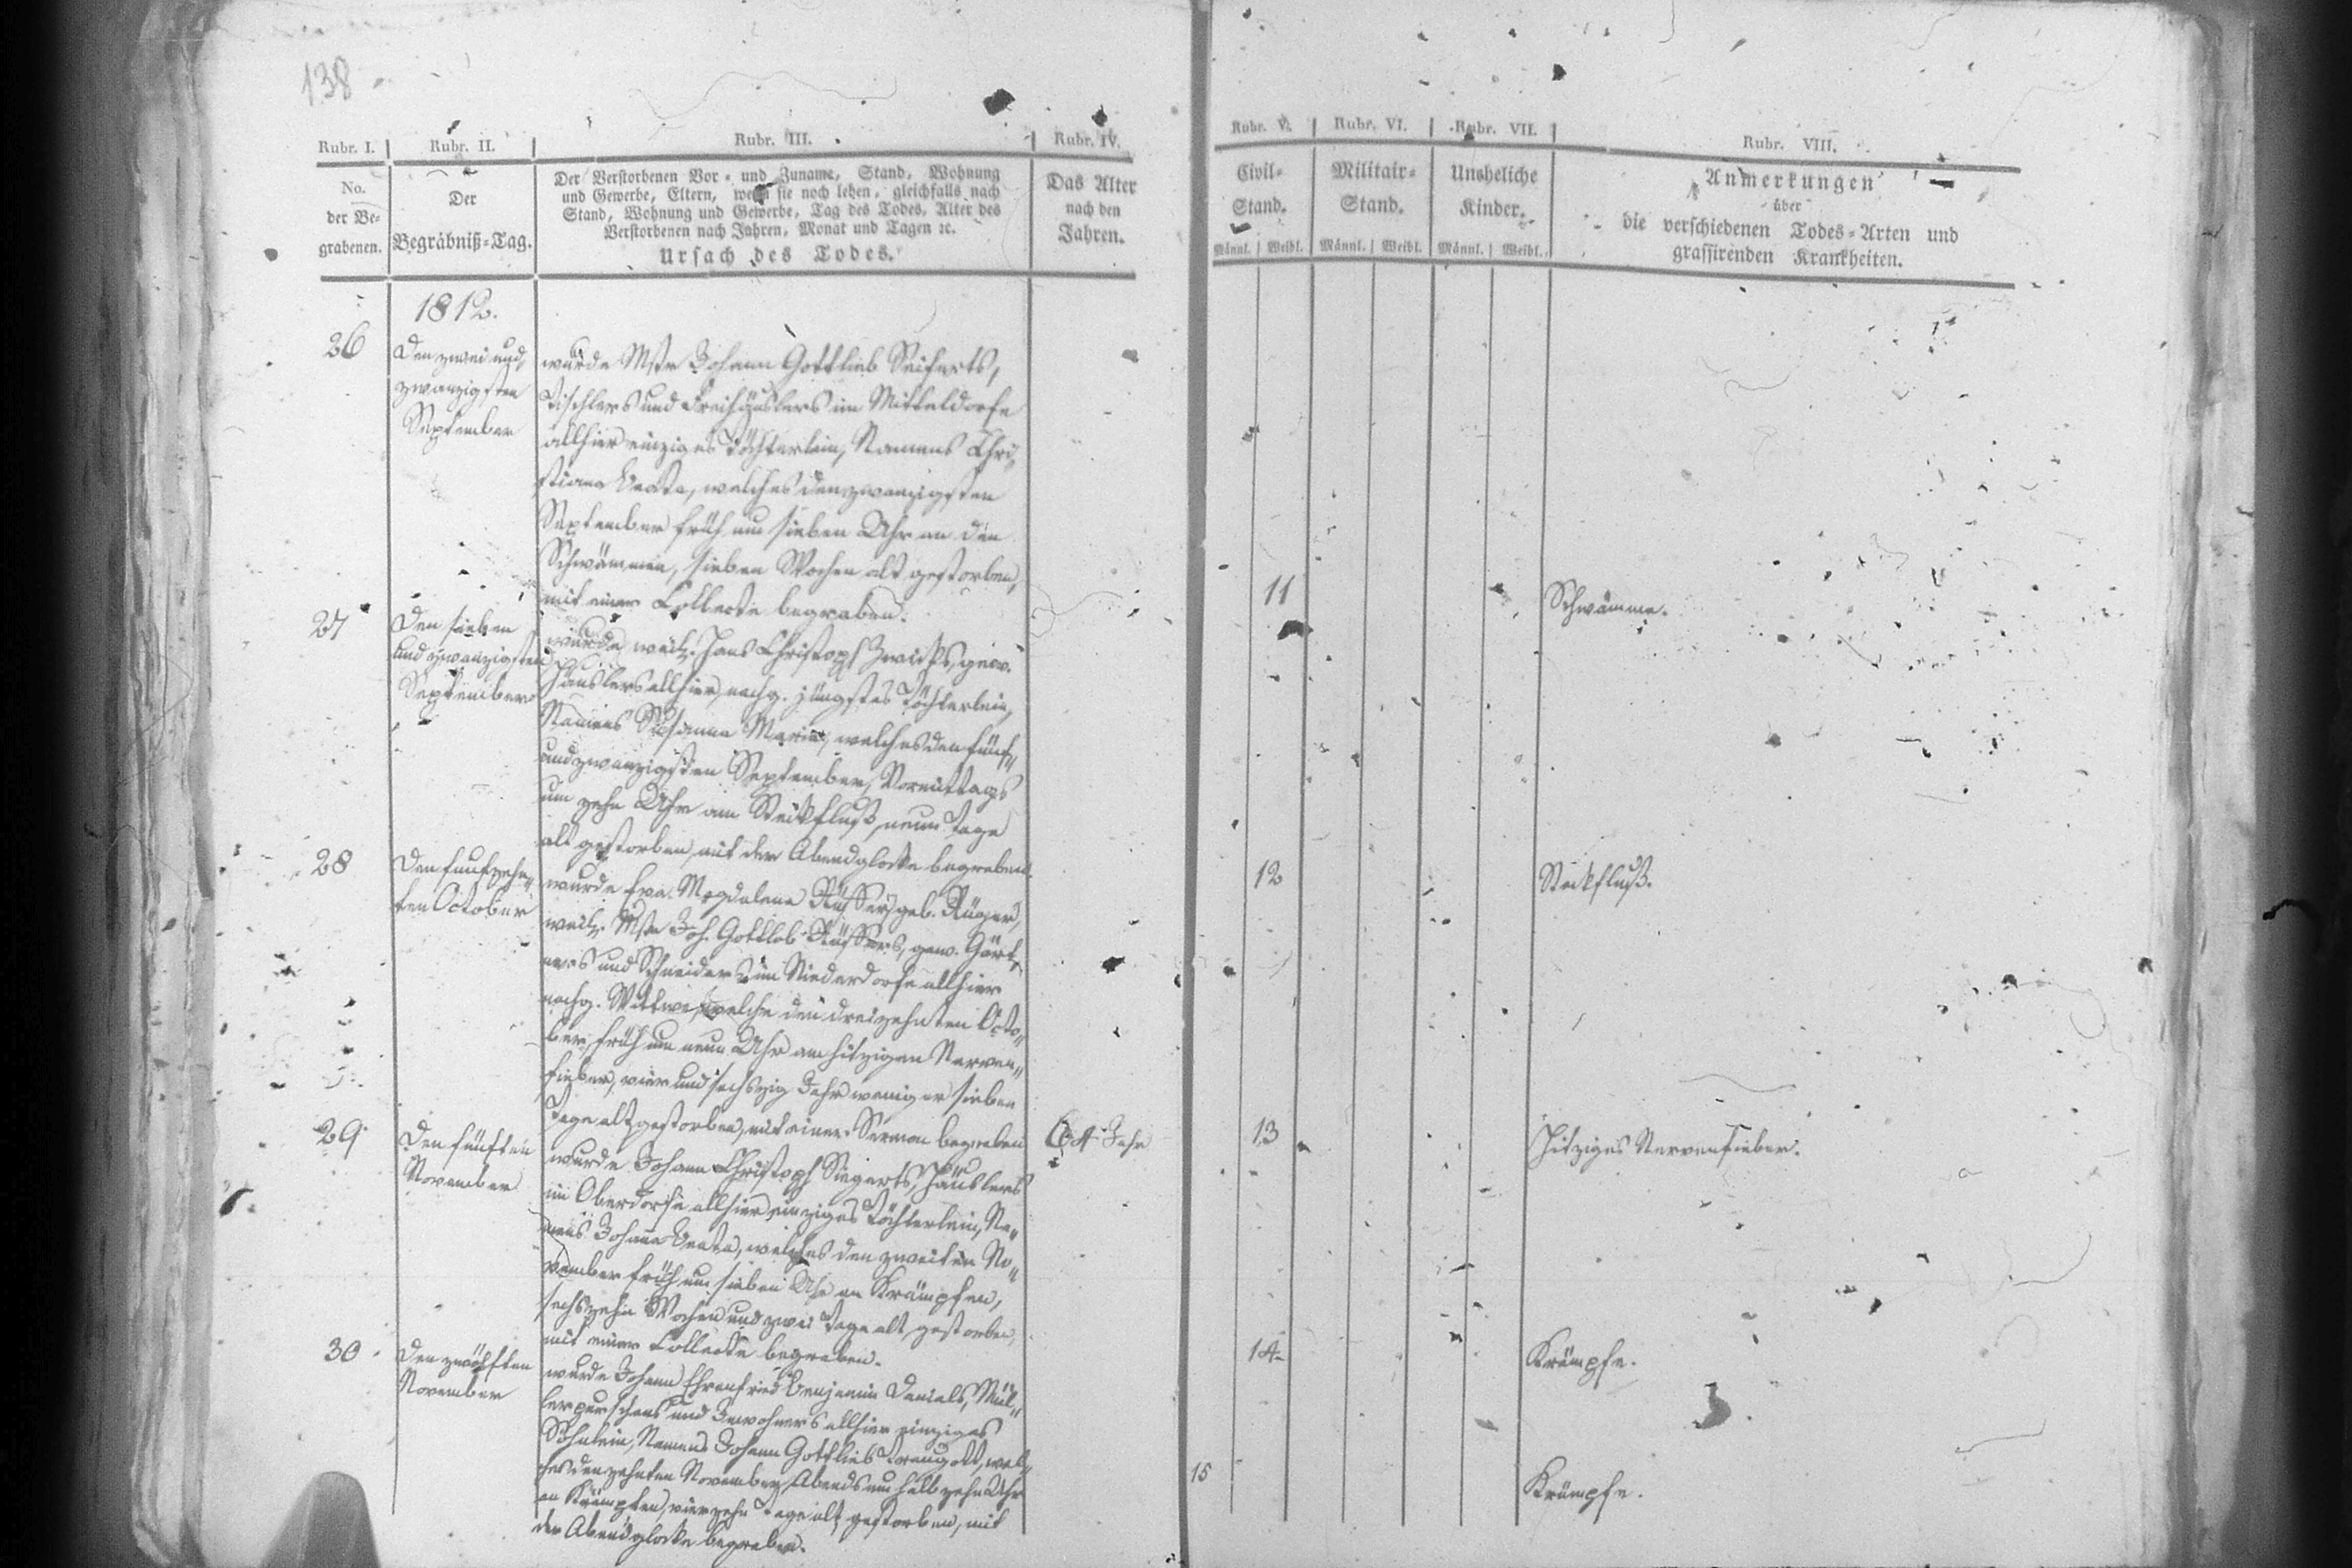 138
Rubr. I.
Rubr. II.
Rubr. III.
Rubr. IV.
Rubr. V.
Rubr. VI.
Rubr. VII.
Rubr. VIII.
No.
der Be-
grabenen.
Der
Begräbniß-Tag.
Der Verstorbenen Vor- und Zuname, Stand, Wohnung
und Gewerbe, Eltern, wenn sie noch leben, gleichfalls nach
Stand, Wohnung und Gewerbe, Tag des Todes, Alter des
Verstorbenen nach Jahren, Monat und Tagen ꝛc.
Ursach des Todes.
Das Alter
nach den
Jahren.
Civil-
Stand.
Männl. Weibl.
Militair-
Stand.
Männl. Weibl.
Uneheliche
Kinder.
Männl. Weibl.
Anmerkungen
über
die verschiedenen Todes-Arten und
grassirenden Krankheiten.
1812.
26
Den zwei und
zwanzigsten
September
wurde Mstr Johann Gottlieb Seiferts,
Tischlers und Freihäuslers im Mitteldorfe
allhier einziges Töchterlein, Namens Chri-
stiana Beata, welches den zwanzigsten
September früh um sieben Uhr an den
Schwämmen, sieben Wochen alt gestorben,
mit einer Collecte begraben.
11
Schwämme.
27
Den sieben
und zwanzigsten
September
wurde weil. Hans Christoph Zwicks, gew.
Häuslers allhier, nachg. jüngstes Töchterlein,
Namens Susanna Maria, welches den fünf
und zwanzigsten September, Vormittags
um zehn Uhr am Steckfluß, neun Tage
alt gestorben, mit der Abendglocke begraben.
12
Steckfluß.
28
Den funfzehn-
ten October
wurde Eva Magdalena geb.
weil. Mstr Joh. Gottlob gew. Gärt-
ners und Schneiders im Niederdorfe allhier
nachg. Wittwe, welche den dreizehnten Octo-
ber, früh um neun Uhr am hitzigen Nerven-
fieber, vier und sechszig Jahr weniger sieben
Tage alt gestorben, mit einer Sermon begraben
64 Jahr
13
Hitziges Nervenfieber.
29
Den fünften
November
wurde Johann Christoph Siegerts, Häuslers
im Oberdorfe allhier einziges Töchterlein, Na-
mens Johanna Beata, welches den zweiten No-
vember früh um sieben Uhr an Krämpfen,
sechszehn Wochen und zwei Tage alt gestorben,
mit einer Collecte begraben.
14
Krämpfe.
30
Den zwölften
November
wurde Johann Ehrenfried Benjamin Daniels, Mül-
lerpurschens und Inwohners allhier einziges
Söhnlein, Namens Johann Gottlieb Traugott, wel-
ches den zehnten November, Abends um halb zehn Uhr
an Krämpfen, vierzehn Tage alt gestorben, mit
der Abendglocke begraben.
15
Krämpfe.